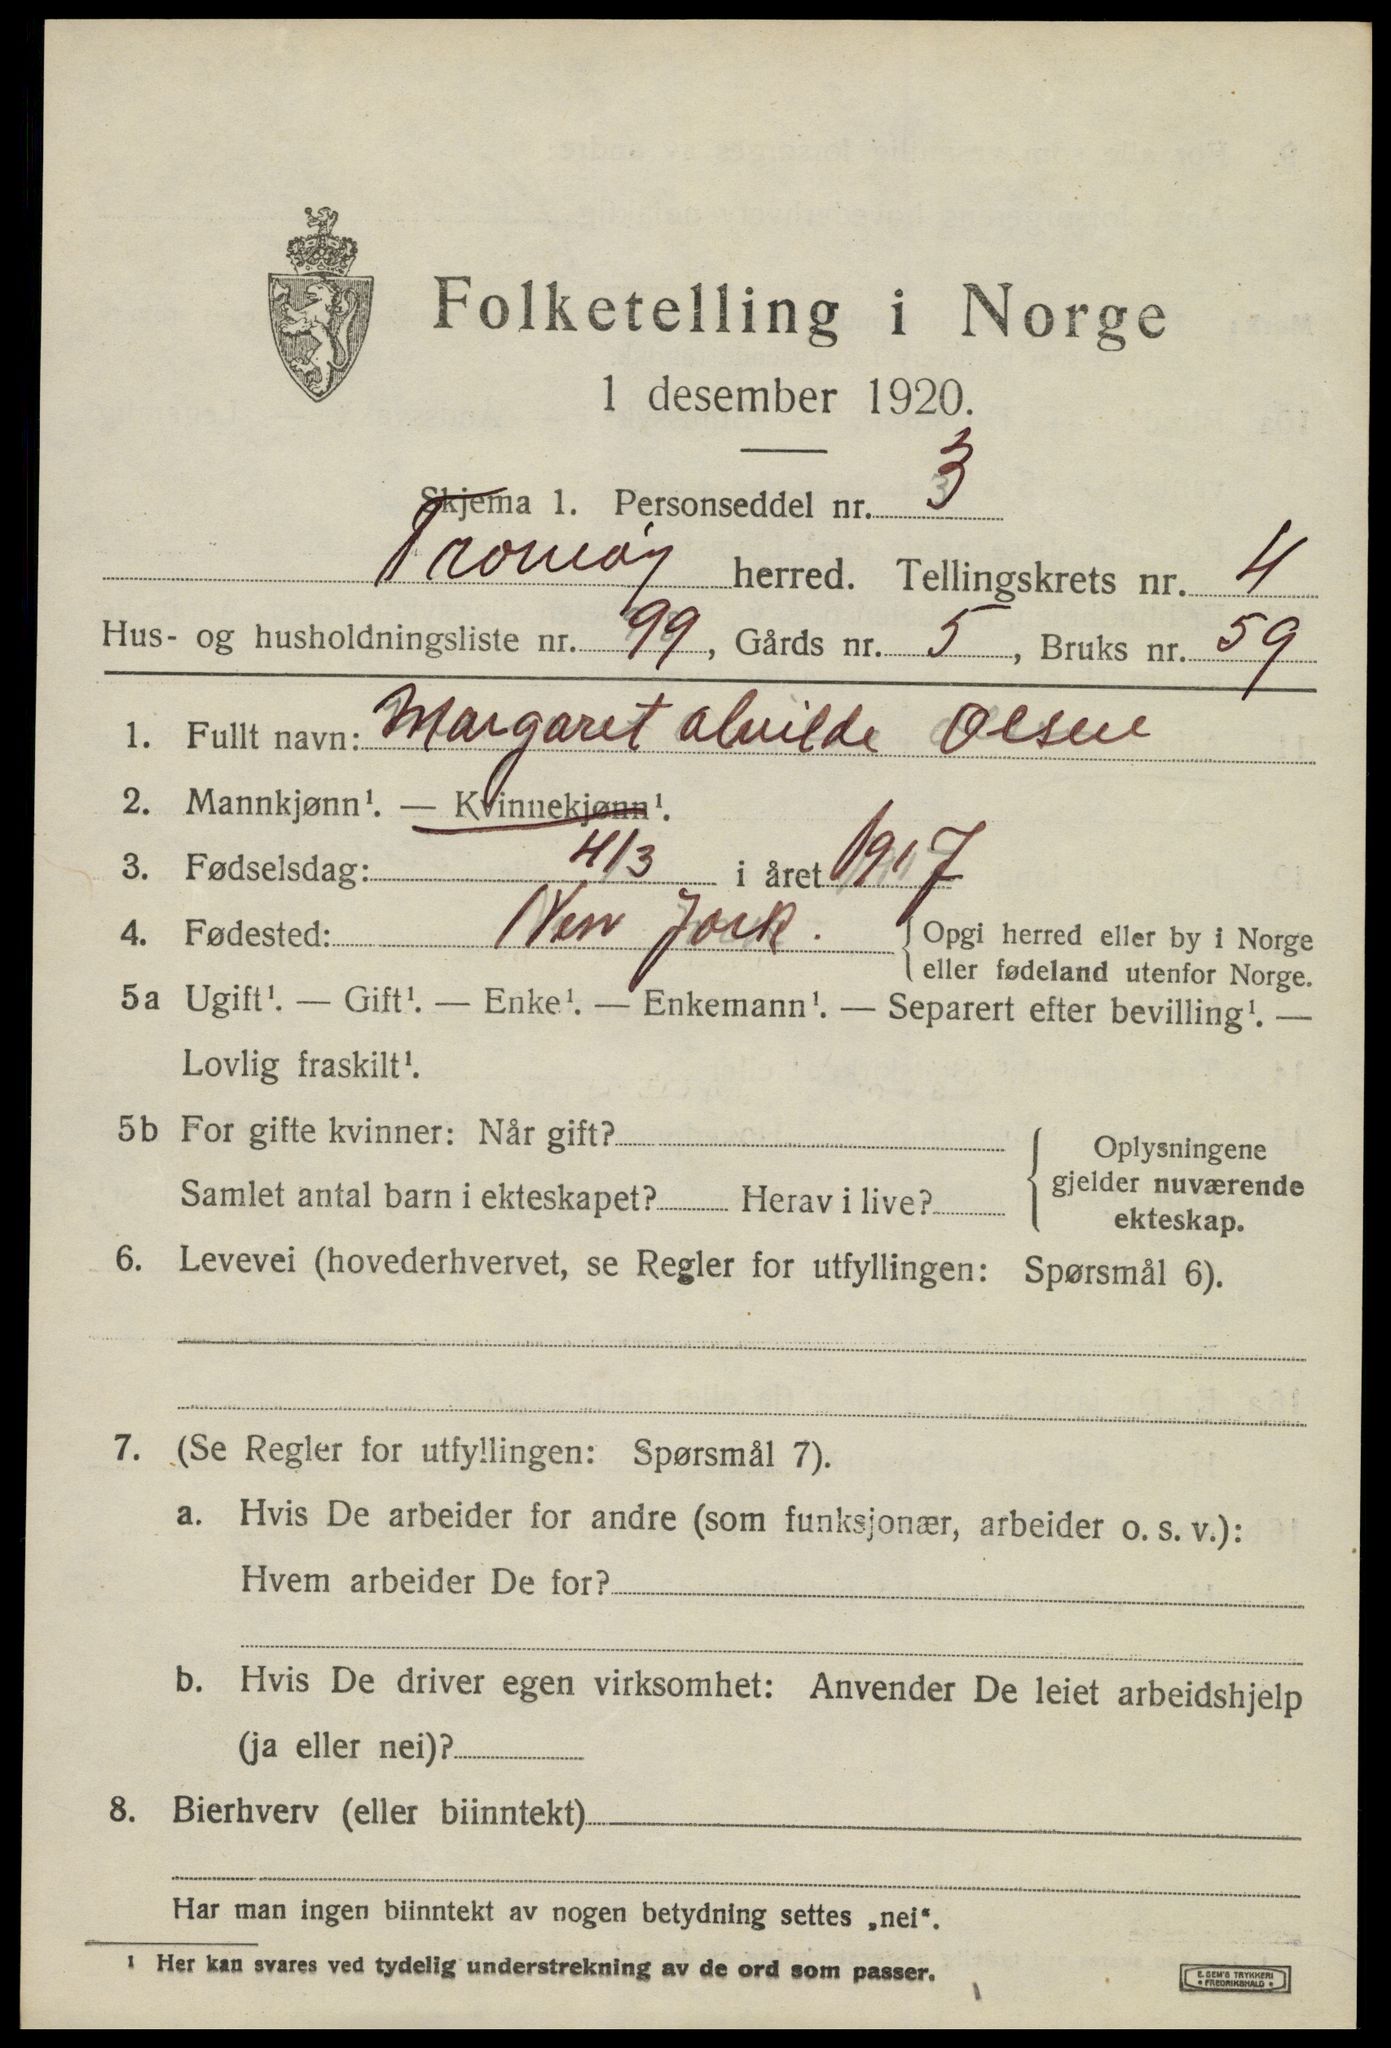 Folketelling i Norge
1 desember 1920.
Skjema 1. Personseddel nr. 3
Tromøy herred. Tellingskrets nr. 4
Hus- og husholdningsliste nr. 99, Gårds nr. 5, Bruks nr. 59
1. Fullt navn: Margaret Alvilde Olsen
2. Mannkjønn¹. — Kvinnekjønn¹.
3. Fødselsdag: 4/3 i året 1917
4. Fødested: New York. Opgi herred eller by i Norge
eller fødeland utenfor Norge.
5a Ugift¹. — Gift¹. — Enke¹. — Enkemann¹. — Separert efter bevilling¹. —
Lovlig fraskilt¹.
5b For gifte kvinner: Når gift?
Samlet antal barn i ekteskapet? Herav i live?
Oplysningene
gjelder nuværende
ekteskap.
6. Levevei (hovederhvervet, se Regler for utfyllingen: Spørsmål 6).
7. (Se Regler for utfyllingen: Spørsmål 7).
a. Hvis De arbeider for andre (som funksjonær, arbeider o. s. v.):
Hvem arbeider De for?
b. Hvis De driver egen virksomhet: Anvender De leiet arbeidshjelp
(ja eller nei)?
8. Bierhverv (eller biinntekt)
Har man ingen biinntekt av nogen betydning settes „nei“.
¹ Her kan svares ved tydelig understrekning av de ord som passer.
E. SEM'S TRYKKERI
• FREDRIKSHALD •